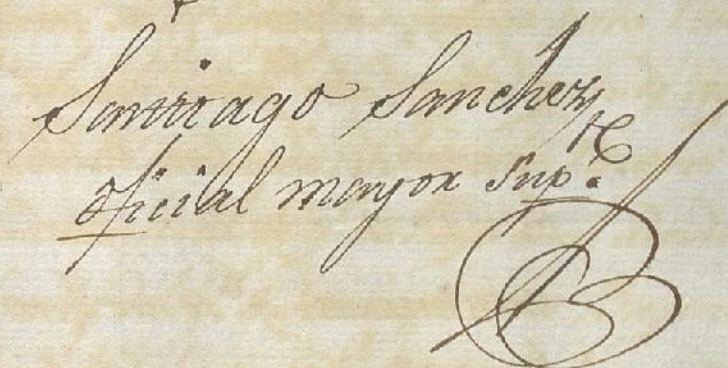 Santiago Sanchez
oficial mayor Sup.te